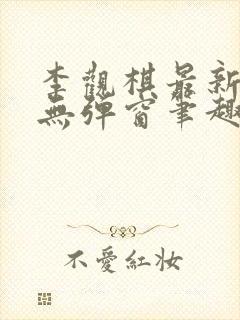 李觀棋最新
無彈窗筆趣
不愛紅妝